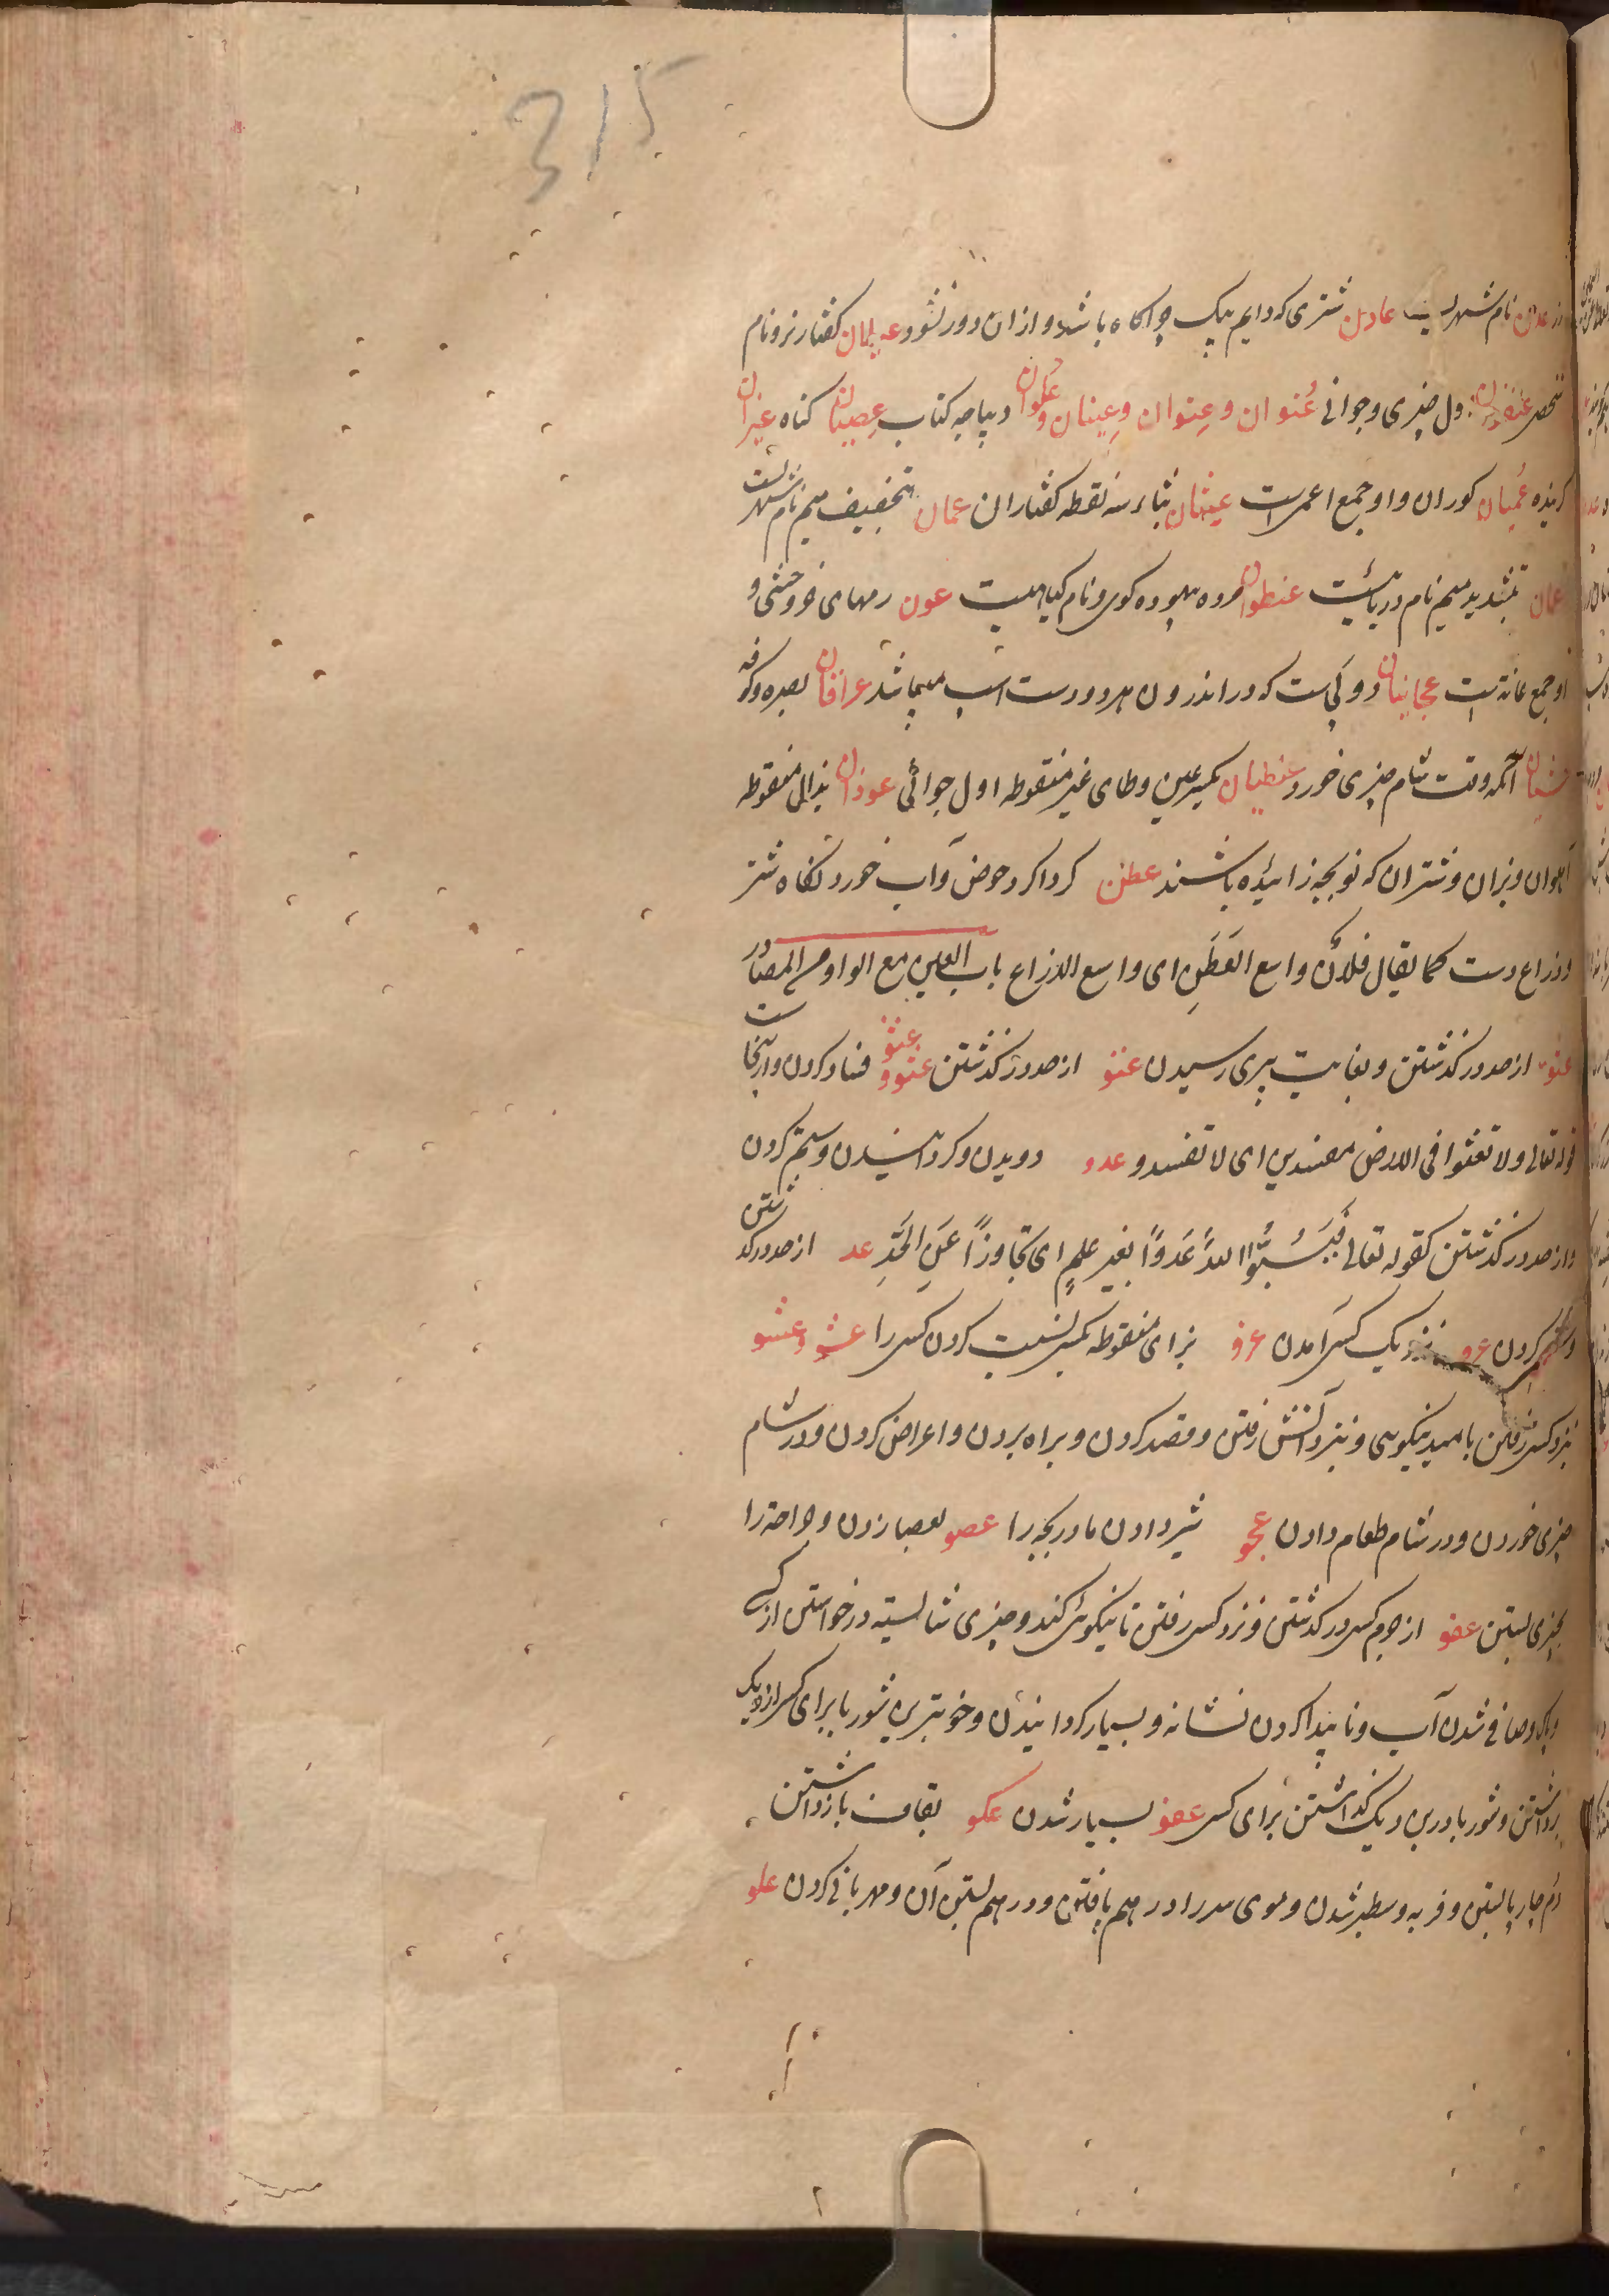 315
عدن نام شهریست عادن شتری که دایم بیک چراکاه باشد و ازان دور نشود عیلان کفتار نر و نام
شخصی عنفوان اول چیزی و جوانی عُنوان و عِنوان و عِینان و عُلوان دیباچه کتاب عِصیان کناه عیزان
کزیده عُمیان کوران و او جمع اعمی است عیثان بثاء سه نقطه کفتاران عمان بتخفیف میم نام شهریست
عمان بتشدید میم نام دریائیست عنظوان مرد بیهوده کوی و نام کیاهیست عون رمهای خر وحشی و
او جمع عانة است عجابیان دو کی است که در اندرون هر دو دست اسب میباشد عراقان بصره و کوفه
عشیان آنکه وقت شام چیزی خورد عنطیان بکسر عین و طای غیر منقوطه اول جوانی عوذان بذال منقوطه
آهوان و بزان و شتران که نو بچه زائیده باشند عطن کرداکرد حوض و آب خورد نکاه شتر
و ذراع دست کما یقال فلانٌ واسع العَطَنِ ای واسع الذراع باب العین مع الواو من المصادر
عتو از حد در کذشتن و بغایت پیری رسیدن عتو از حد در کذشتن عثو و عثو فساد کردن و از اینجاست
قوله تعالی ولا تعثوا فی الارض مفسدین ای لا تفسدو عدو دویدن و کردانیدن و ستم کردن
و از حد در کذشتن کقوله تعالی فَیَسُبُّوا اللهَ عَدْوًا بغیر علمٍ ای تجاوزاً عَنِ الحَدِّ عد از حد در کذشتن
و ستم کردن عرو نزدیک کسی آمدن عزو بزای منقوطه بکسی نسبت کردن کسی را عشو و عشو
بنزد کسی رفتن بامید نیکویی و بنزد آتش رفتن و قصد کردن و براه بردن و اعراض کردن و در شام
چیزی خوردن و در شام طعام دادن عجو شیر دادن مادر بچه را عصو بعصا زدن و جراحة را
بچیزی بستن عفو از جرم کسی در کذشتن و نزد کسی رفتن تا نیکوئی کند و چیزی شایسته درخواستن از کسی
و پاک و صافی شدن آب و ناپیدا کردن نشانه و بسیار کردانیدن و خوبترین شوربا برای کسی از دیک
برداشتن و شوربا در بن دیک کذاشتن برای کسی عفو بسیار شدن عکو بقاف باز داشتن
دم چارپا بستن و فربه و سطبر شدن و موی سر را در هم بافتن و در هم بستن آن و مهربانی کردن علو